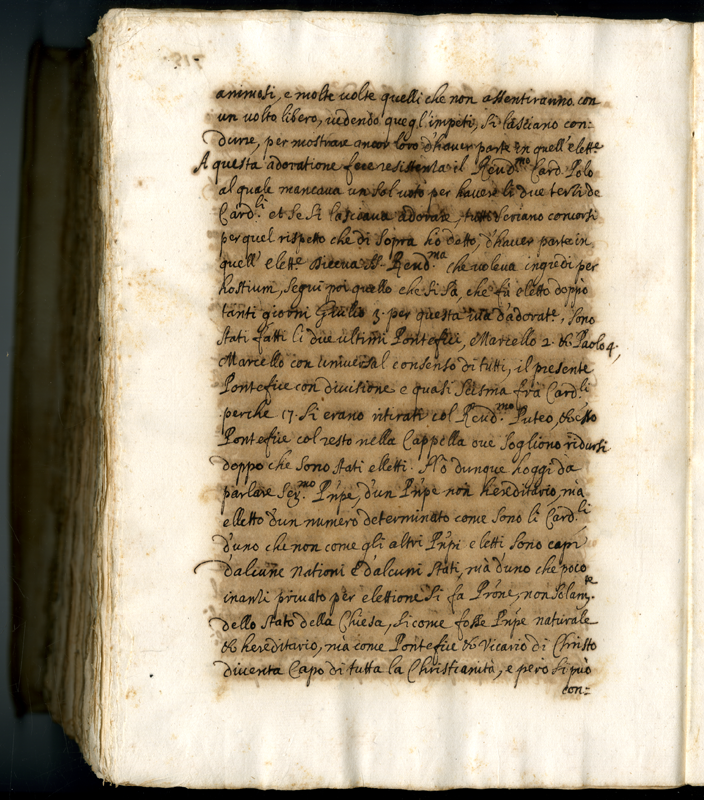 animosi, e molte volte quelli che non assentiranno con
un volto libero, vedendo quegl'impeti, si lasciano con=
durre, per mostrare ancor loro d'haver parte in quell'elettne
A questa adoratione fece resistenza il Rend.mo Card. Polo
al quale mancava un sol voto per havere li due terzi de
Card.li et se si lasciava adorare, tutti seriano concorsi
per quel rispetto che di sopra hò detto, d'haver parte in
quell' elett.e Diceva S. Rend.ma che voleva ingredi per
hostium, seguì poi quello che si sà, che fù eletto doppo
tanti giorni Giulio 3. per questa via d'adorat.e, sono
stati fatti li due ultimi Pontefici, Marcello 2. & Paolo 4.,
Marcello con universal consenso di tutti, il presente
Pontefice con divisione e quasi scisma frà Card.li
perche 17. si erano ritirati col Rend.mo Puteo, & esso
Pontefice col resto nella Cappella ove sogliono ridursi
doppo che sono stati elletti. Hò dunque hoggi da
parlare Ser.mo Pnpe, d'un Pnpe non hereditario, mà
elletto d'un numero determinato come sono li Card.li
d'uno che non come gli altri Pnpi eletti sono capi
d'alcune nationi & d'alcuni stati, mà d'uno che poco
inanti privato per elettione si fà Prone, non solam.te
dello stato della Chiesa, sicome fosse Pnpe naturale
& hereditario, mà come Pontefice & Vicario di Christo
diventa Capo di tutta la Christianità, e però si può
con=